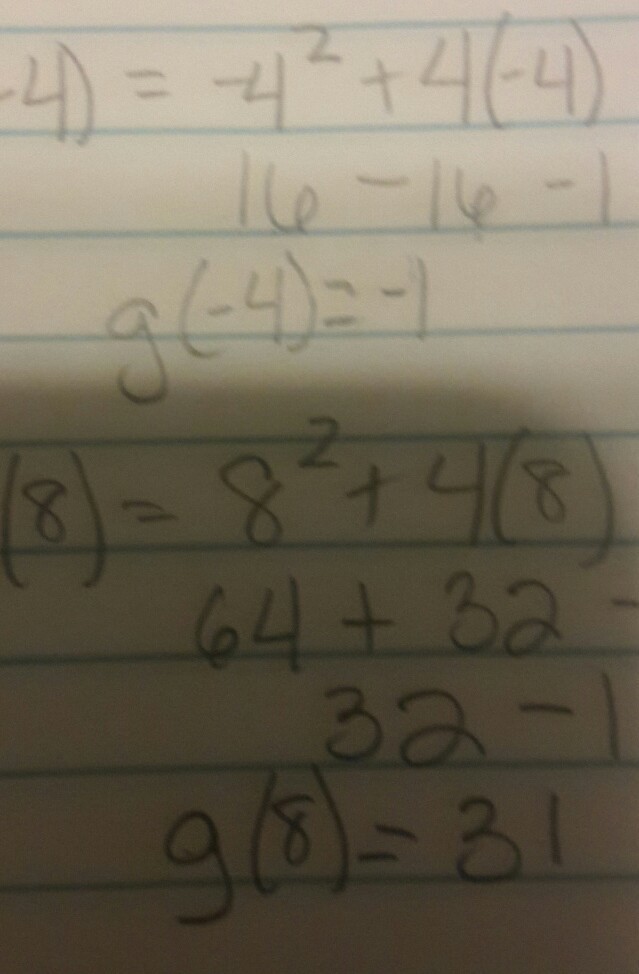 -4) = -4² + 4(-4)
16 - 16 - 1
g(-4) = -1
(8) = 8² + 4(8)
64 + 32 -
32 - 1
g(8) = 31